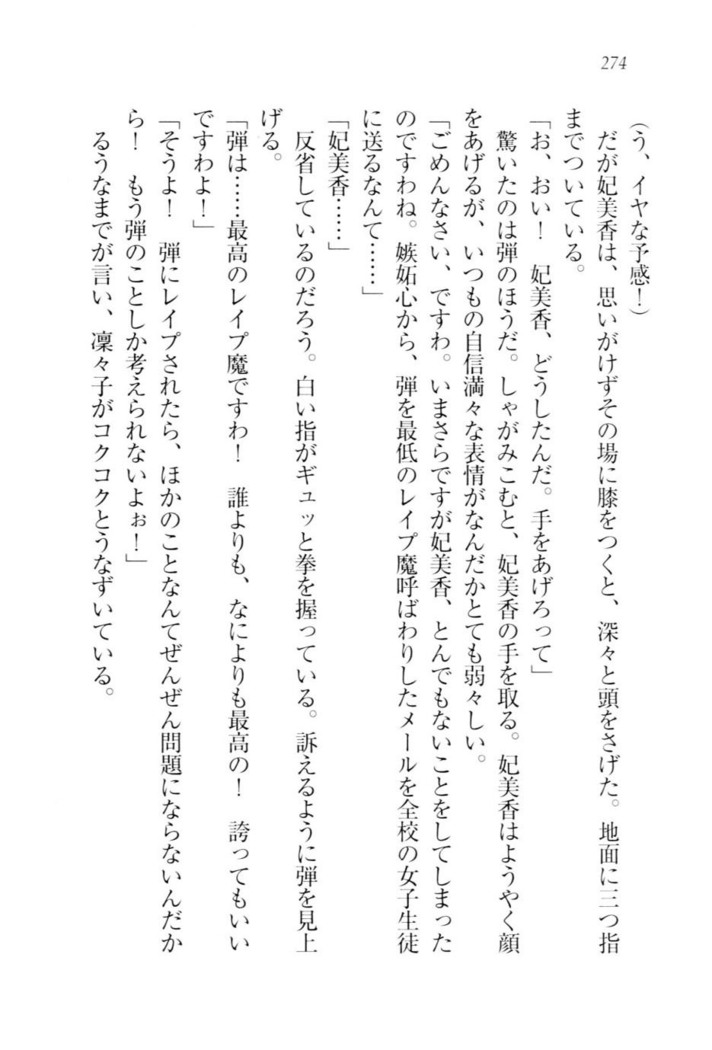 274
(う、イヤな予感！)
　だが妃美香は、思いがけずその場に膝をつくと、深々と頭をさげた。地面に三つ指
までついている。
「お、おい！　妃美香、どうしたんだ。手をあげろって」
　驚いたのは弾のほうだ。しゃがみこむと、妃美香の手を取る。妃美香はようやく顔
をあげるが、いつもの自信満々な表情がなんだかとても弱々しい。
「ごめんなさい、ですわ。いまさらですが妃美香、とんでもないことをしてしまった
のですわね。嫉妬心から、弾を最低のレイプ魔呼ばわりしたメールを全校の女子生徒
に送るなんて……」
「妃美香……」
　反省しているのだろう。白い指がギュッと拳を握っている。訴えるように弾を見上
げる。
「弾は……最高のレイプ魔ですわ！　誰よりも、なによりも最高の！　誇ってもいい
ですわよ！」
「そうよ！　弾にレイプされたら、ほかのことなんてぜんぜん問題にならないんだか
ら！　もう弾のことしか考えられないよぉ！」
　るうなまでが言い、凜々子がコクコクとうなずいている。